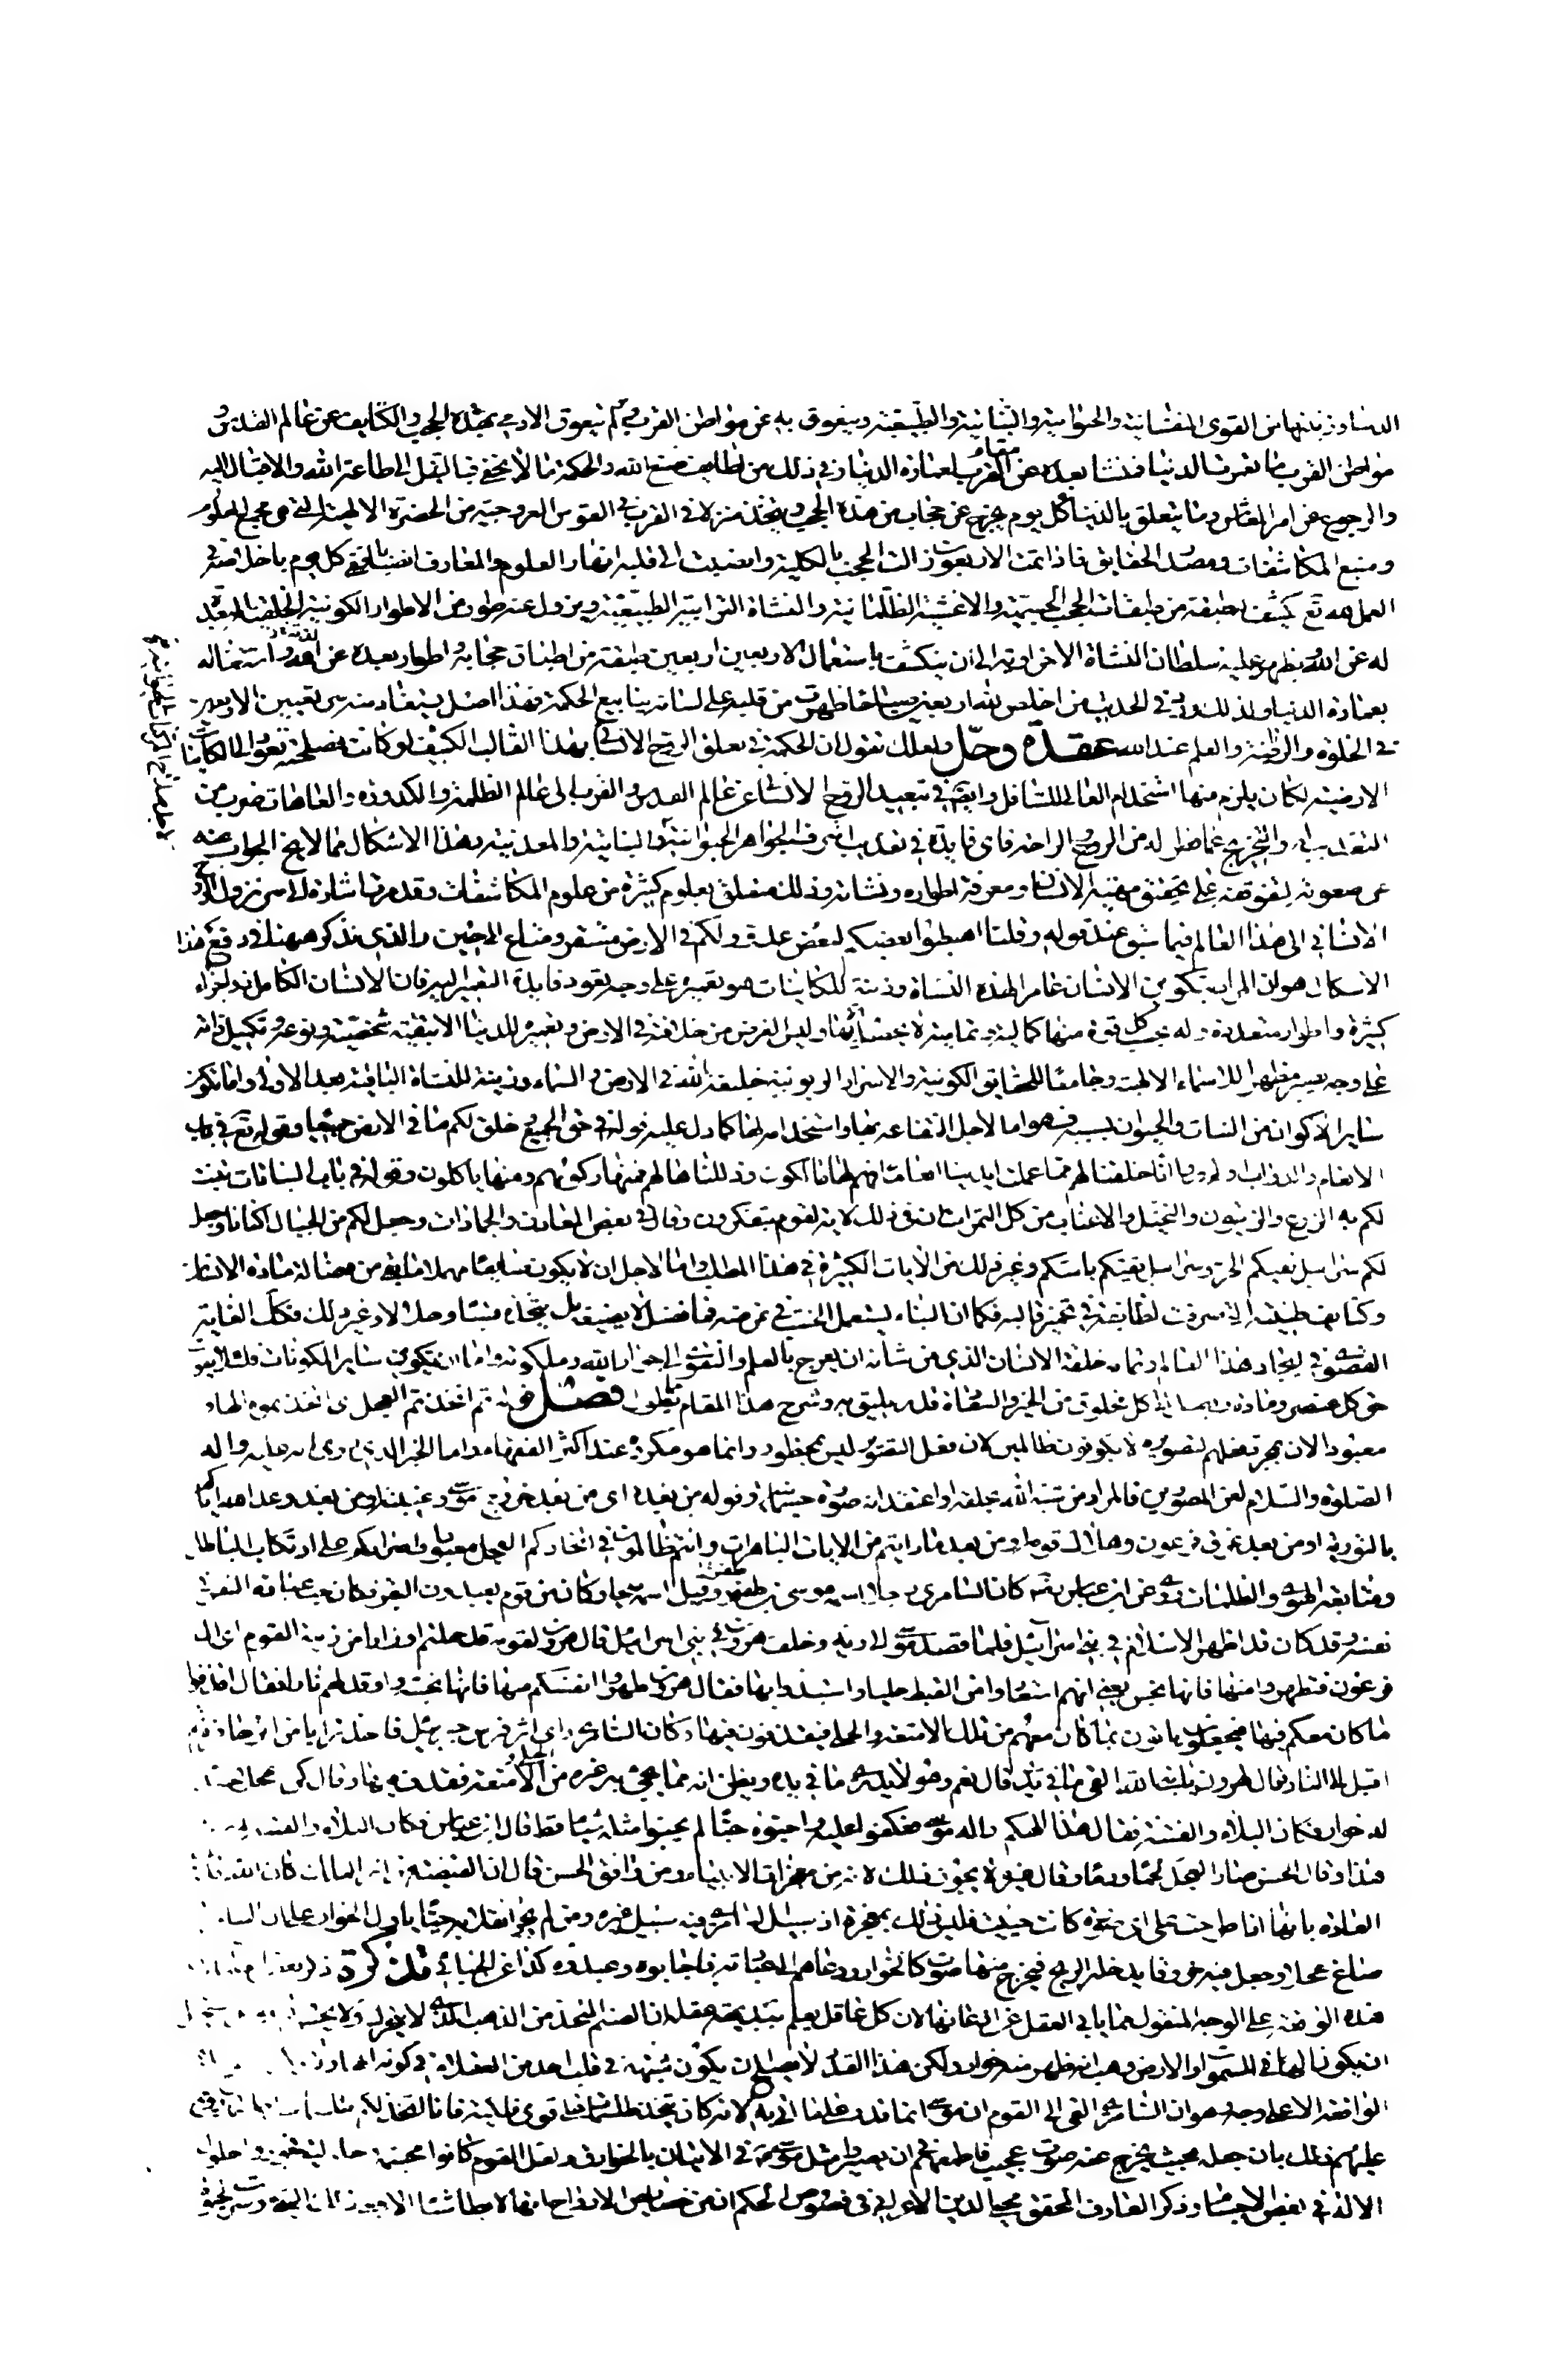 الدنيا وزينتها من القوى النفسانية والحيوانية والنباتية والطبيعية ويتعوق به عن مواطن القرب ولو لم يتعوق الادمي بهذه الحجب والكثايف عن عالم القدس و
مواطن القرب ما تعمرت الدنيا فنشا بعده عن مقام القرب لعمارة الدنيا وفي ذلك من لطايف صنع الله والحكمة ما لا يخفى فبالتبتل الى طاعة الله والاقبال اليه
والرجوع عن امر المعاش وما يتعلق بالدنيا كل يوم يخرج عن حجاب من هذه الحجب ويتخذ منزلا في القرب في القوس العروجية من الحضرة الالهية التي هي مجمع العلوم
ومنبع المكاشفات ومصدر الحقايق فاذا تمت الاربعون زالت الحجب بالكلية وانصبت الى قلبه انهار العلوم والمعارف انصبابا كل يوم باخلاصه في
العمل لله تع كشف طبقة من طبقات الحجب الجسمية والاغشية الظلمانية والنشاة الترابية الطبيعية ويزول عنه طور من الاطوار الكونية الخلقية المبعدة
له عن الله ويظهر عليه سلطان النشاة الاخراوية الى ان ينكشف باستعمال الاربعين اربعين طبقة من اطباق حجابه واطوار بعده عن الله واشتغاله
بعمارة الدنيا ولذلك ورد في الحديث من اخلص لله اربعين صباحا ظهرت من قلبه على لسانه ينابيع الحكمة فهذا اصل يستفاد منه سر تعيين الاربعين
في الخلوة والرياضة والعلم عند الله عقدة وحل ولعلك تقول ان الحكمة في تعلق الروح الانساني بهذا القالب الكثيف لو كانت مصلحة تعود الى الكاينات
الارضية لكان يلزم منها استخدام العالي للسافل وايضا في تبعيد الروح الانساني عن عالم القدس والقرب الى عالم الظلمة والكدورة والعاهات ضرب من
التعذيب له والتخريج عما هو له من الروح والراحة فاي فايدة في تعذيب اشرف الجواهر الحيوانية والنباتية والمعدنية وهذا الاشكال مما لا يخ الجواب عنه
عن صعوبة لتوقفه على تحقيق مهية الانسان ومعرفة اطواره ونشاته وذلك متعلق بعلوم كثيرة من علوم المكاشفات وقد مرت اشارة الى سر نزول الروح
الانساني الى هذا العالم فيما سبق عند قوله وقلنا اهبطوا بعضكم لبعض عدو ولكم في الارض مستقر ومتاع الى حين والذي نذكر ههنا في دفع هذا
الاشكال هو ان المراد بتكوين الانسان عامرا لهذه النشاة وزينة للكاينات هو تعميره على وجه يعود فايدة التعمير اليه فان الانسان الكامل ذو اجزاء
كثيرة واطوار متعددة وله بحسب كل قوة منها كمالية وتمامية لا بحسب سايرها وليس الغرض من خلافته في الارض وتعميره للدنيا الا تبقية شخصيته ونوعه وتكميل ذاته
على وجه يصير مظهرا للاسماء الالهية وجامعا للحقايق الكونية والاسرار الربوبية خليفة الله في الارض والسماء وزينة للنشاة الباقية بعد الاولى واما تكون
ساير الاكوان من النبات والحيوان بسببه فهو اما لاجل انتفاعه بها واستخدامه لها كما دل عليه قوله في حق الجميع خلق لكم ما في الارض جميعا وقوله تع في باب
الانعام والدواب اولم يروا انا خلقنا لهم مما عملت ايدينا انعاما فهم لها مالكون وذللناها لهم فمنها ركوبهم ومنها ياكلون وقوله في باب النباتات ينبت
لكم به الزرع والزيتون والنخيل والاعناب ومن كل الثمرات ان في ذلك لاية لقوم يتفكرون وقال في بعض المعادن والجمادات وجعل لكم من الجبال اكنانا وجعل
لكم سرابيل تقيكم الحر وسرابيل تقيكم باسكم وغير ذلك من الايات الكثيرة في هذا المطلب واما لاجل ان لا يكون ضايعا مهملا ما بقي من فضالة مادة الانسان
وكثايف طينته التي صرفت لطايفه في تخمير قالبه فكما ان البناء يستعمل الخشب في غرضه فما فضل لا يضيعه بل يتخذه قسيا وخلالا وغير ذلك فكك الغاية
القصوى في ايجاد هذا العالم وتمامه خلقة الانسان الذي من شانه ان يعرج بالعلم والتقوى الى جوار الله وملكوته واما تكوين ساير المكونات فلئلا يفوت
حق كل عنصر ومادة كل مخلوق من الخير والسعادة قدر يليق به وشرح هذا المقام يطلب فصل قوله ثم اتخذتم العجل اى اتخذتموه الها و
معبودا لان بمجرد فعلهم لصورة لا يكونون ظالمين لان فعل التصوير ليس بمحظور وانما هو مكروه عند اكثر الفقهاء واما الخبر الذي روي انه عليه واله
الصلوة والسلام لعن المصورين فالمراد من شبه الله بخلقه او اعتقد انه صورة وقوله من بعده اى من بعد خروج موسى وغيبته او من بعد وعد الله اياكم
بالتورية او من بعد غرق فرعون وهذا القوم او من بعد ما رايتم من الايات الباهرات وانتم ظالمون في اتخاذكم العجل معبودا واصراركم على ارتكاب الباطل
ومتابعة الهوى والظلمات روي عن ابن عباس كان السامري رجلا اسمه موسى بن ظفر وقيل اسمه ميحا وكان من قوم يعبدون البقر فكان حب عبادة البقر في
نفسه وقد كان قد اظهر الاسلام في بني اسرائيل فلما قصد موسى الى ربه وخلف هرون في بني اسرائيل قال هرون لقومه قد حملتم اوزارا من زينة القوم اى ال
فرعون فتطهروا منها فانها نجس يعني انهم استعاروا من القبط حليا واستبدوا بها فقال هرون طهروا انفسكم منها فانها نجسة واوقد لهم نارا فقال اقذفوا
ما كان معكم فيها فجعلوا ياتون بما كان معهم من تلك الامتعة والحلي فيقذفون فيها وكان السامري راى اثر فرس جبرئيل فاخذ ترابا من اثر حافره ثم
اقبل الى النار فقال لهرون يا نبي الله القي ما في يدي قال نعم وهو لا يدري ما في يده ويظن انه مما يجيء به غيره من الحلي والامتعة فقذف فيها وقال كن عجلا جسدا
له خوار فكان البلاء والفتنة فقال هذا الهكم واله موسى فعكفوا عليه واحبوه حبا لم يحبوا مثله شيئا قط قال ابن عباس فكان البلاء والفتنة
هذا وقال الحسن صار العجل لحما ودما وقال غيره لا يجوز ذلك لانه من معجزات الانبياء ومن وافق الحسن قال ان القبضة كان الله
العادة بانها اذا طرحت على اى صورة كانت حييت فليس ذلك بمعجزة اذ سبيل السامري فيه سبيل غيره ومن لم يجز انقلابه حيا ياول الخوار على ان السامري
صاغ عجلا وجعل فيه خروقا يدخله الريح فيخرج منها صوت كالخوار ودعاهم الى عبادته فاجابوه وعبدوه كذا عن الجبائي تذكرة
هذه الواقعة على الوجه المنقول مما يابى العقل عن اذعانها لان كل عاقل يعلم ببديهة عقله ان الصنم المتخذ من الذهب الذي لا يتحرك ولا يحس
ان يكون الها في السموات والارض وهب انه ظهر منه خوار ولكن هذا القدر لا يصلح ان يكون شبهة في قلب احد من العقلاء في كونه الها
الواقعة الا على وجه وهو ان السامري القى الى القوم ان موسى انما قدر على ما اتى به لانه كان يتخذ طلسمات على قوى فلكية فانا اتخذ لكم
عليهم ذلك بان جعله بحيث يخرج عنه صوت عجيب فاطمعهم في ان يصيروا مثل موسى في الاتيان بالخوارق ولعل القوم كانوا مجسمة
الاله في بعض الاجسام وذكر العارف المحقق محيي الدين الاعرابي في فصوص الحكم ان من خصايص الارواح انها لا تطا شيئا الا